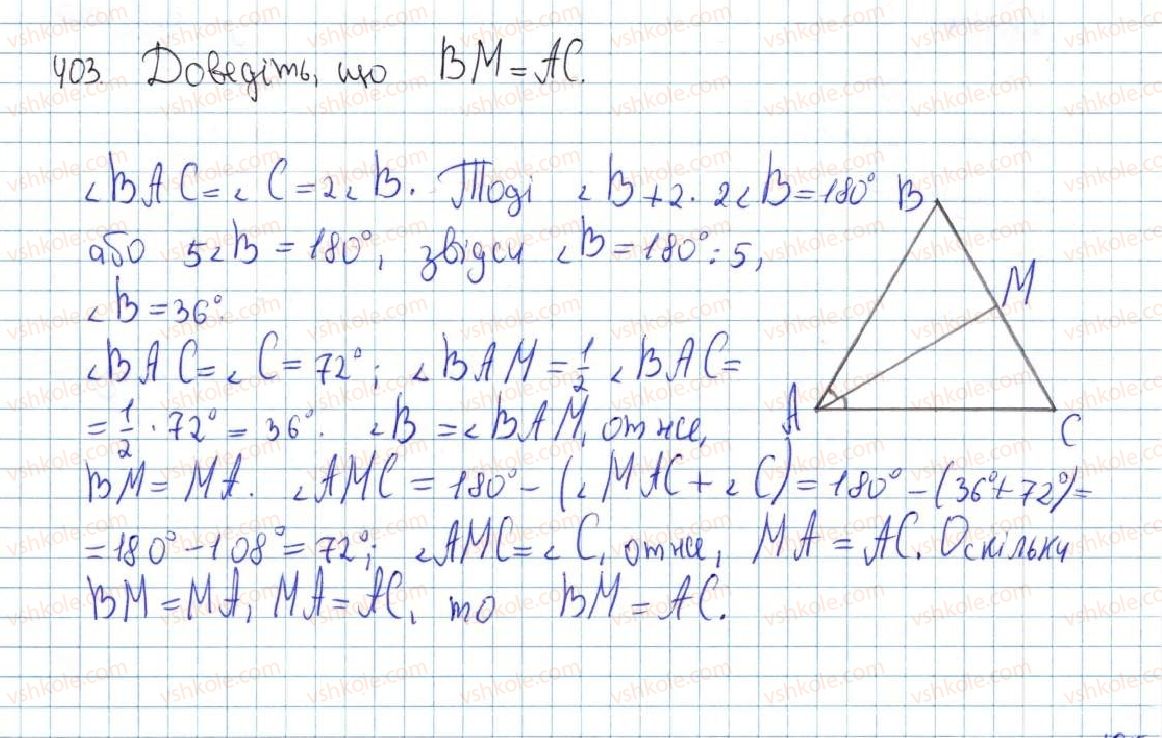 403 Доведіть, що BM = AC.
∠BAC = ∠C = 2∠B. Тоді ∠B + 2 · 2∠B = 180°
або 5∠B = 180°, звідси ∠B = 180° : 5,
∠B = 36°.
∠BAC = ∠C = 72°; ∠BAM = 1/2 ∠BAC =
= 1/2 · 72° = 36°. ∠B = ∠BAM, отже,
BM = MA. ∠AMC = 180° - (∠MAC + ∠C) = 180° - (36° + 72°) =
= 180° - 108° = 72°; ∠AMC = ∠C, отже, MA = AC. Оскільки
BM = MA, MA = AC, то BM = AC.
B
M
A
C
vshkole.com